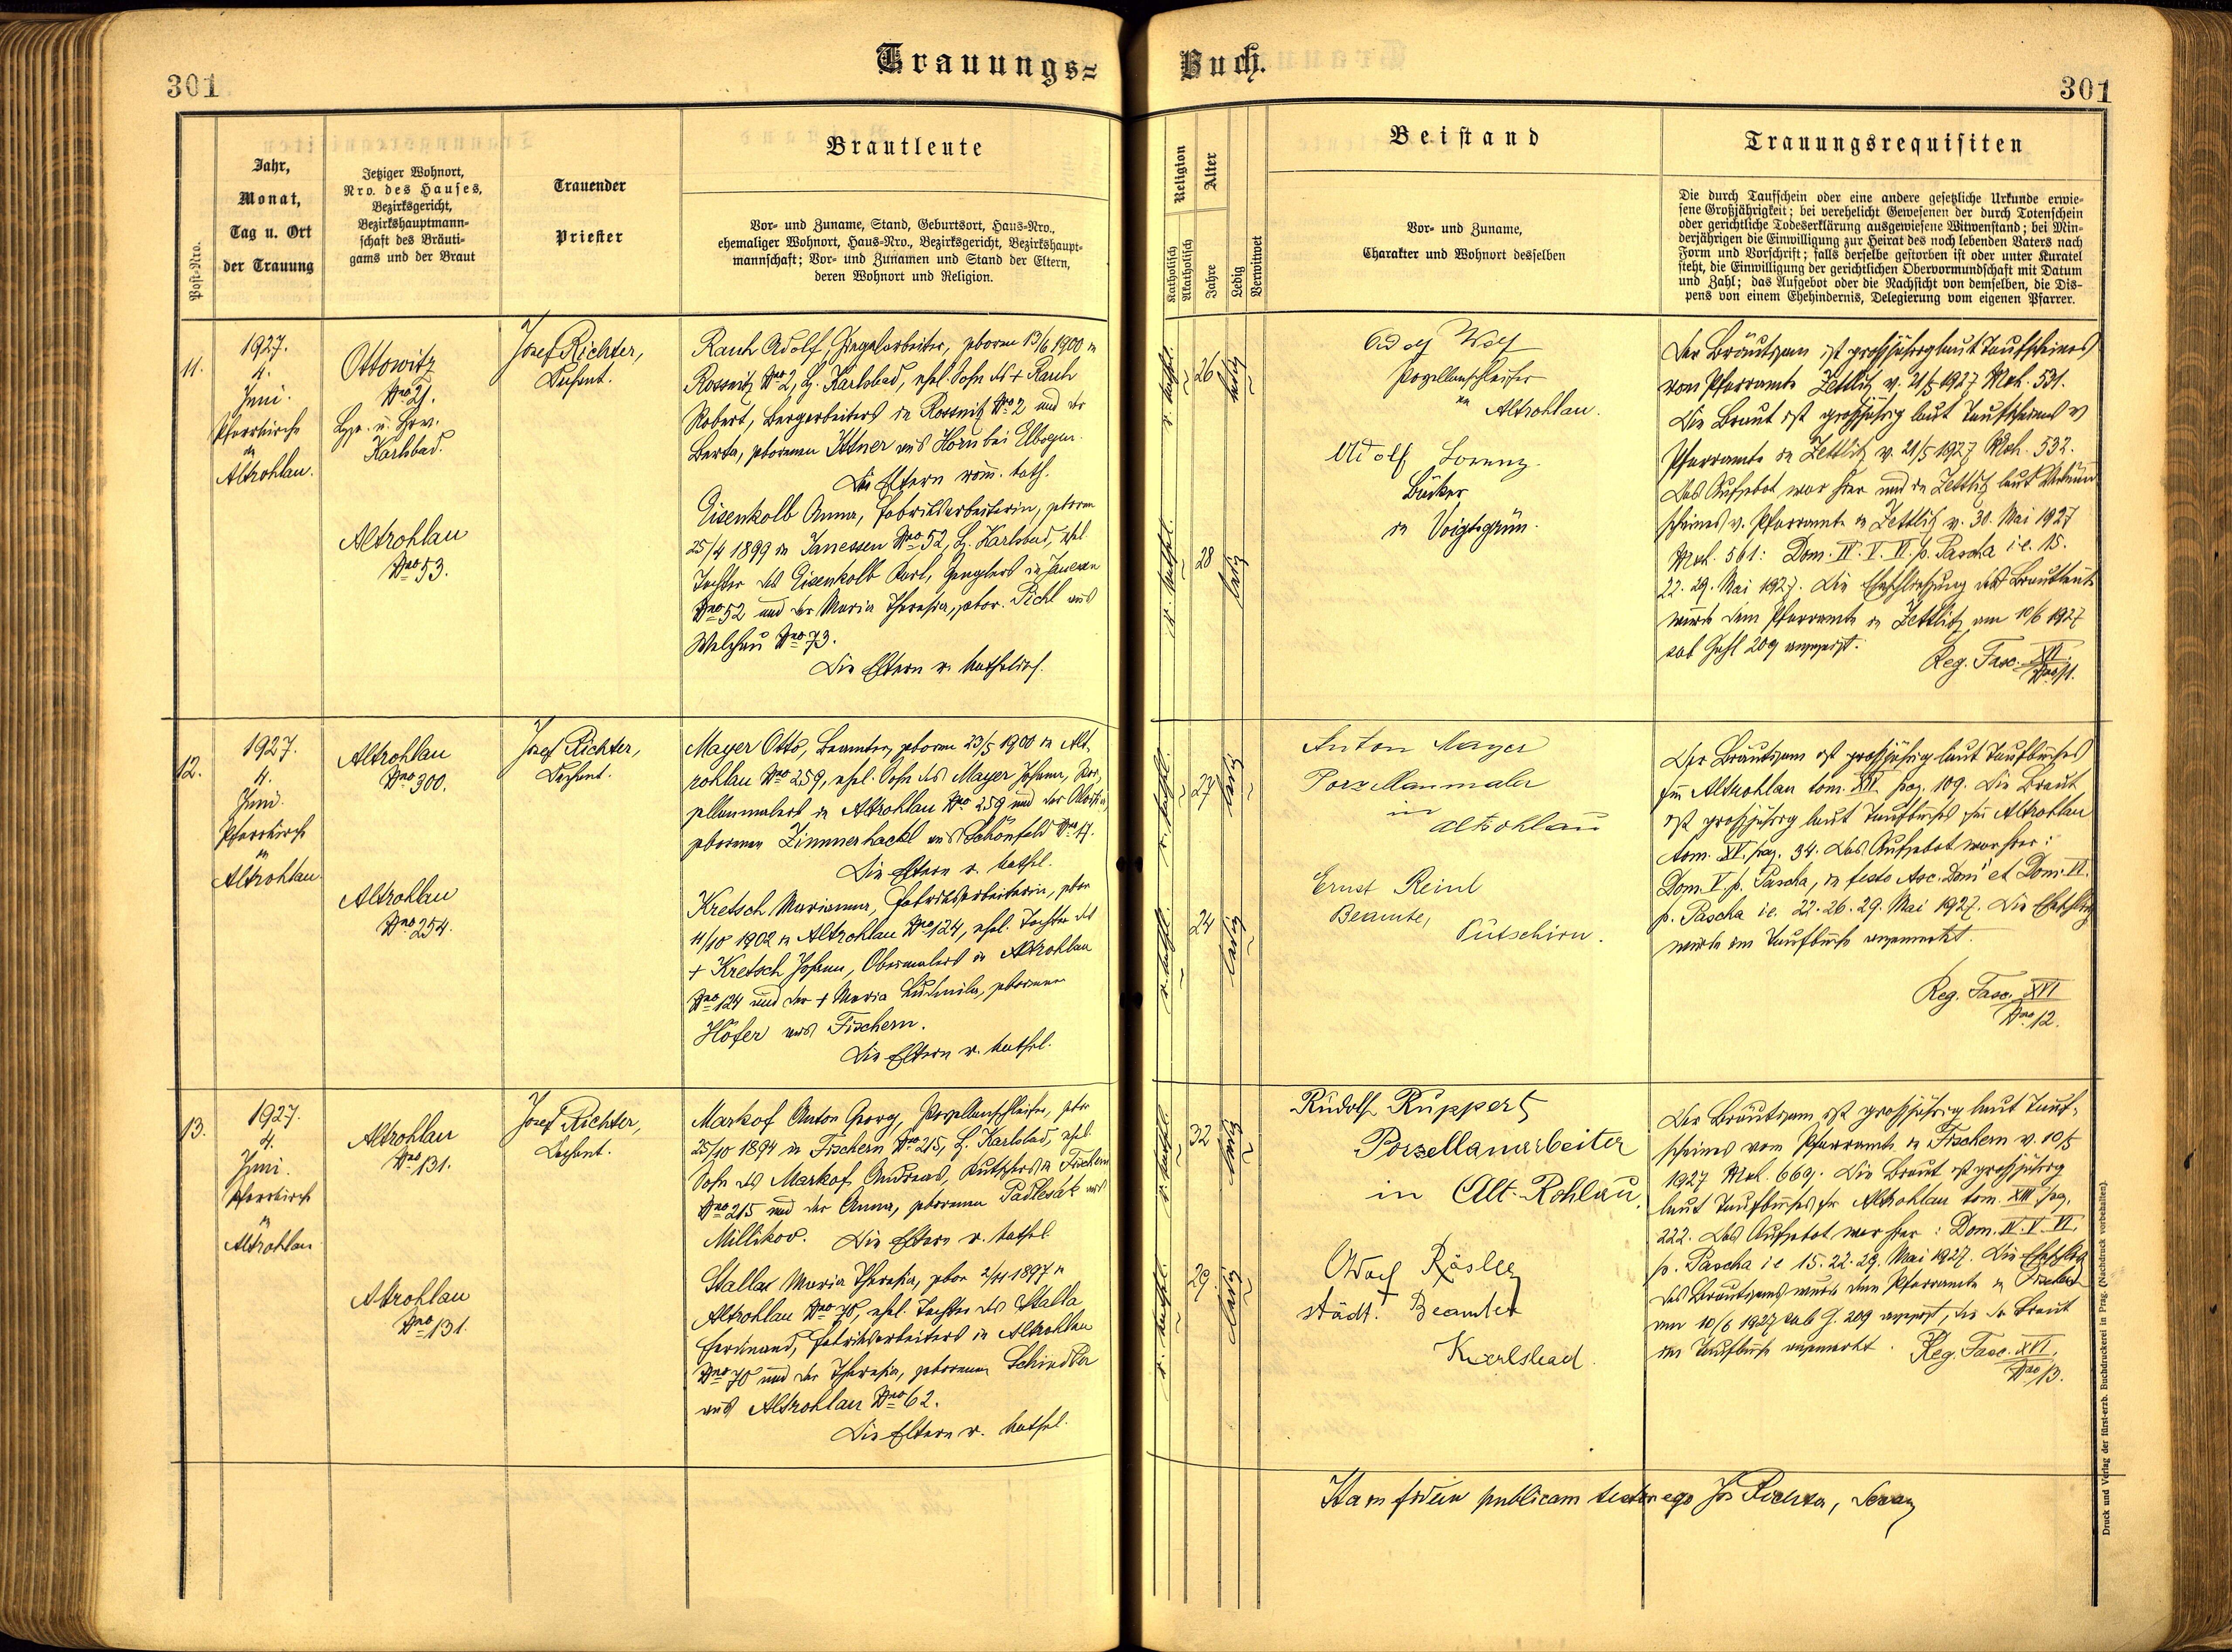 Trauungs-Buch.
301
301
Post-Nro.
Jahr,
Monat,
Tag u. Ort
der Trauung
Jetziger Wohnort,
Nro. des Hauses,
Bezirksgericht,
Bezirkshauptmann-
schaft des Bräuti-
gams und der Braut
Trauender
Priester
Brautleute
Vor- und Zuname, Stand, Geburtsort, Haus-Nro.,
ehemaliger Wohnort, Haus-Nro., Bezirksgericht, Bezirkshaupt-
mannschaft; Vor- und Zunamen und Stand der Eltern,
deren Wohnort und Religion.
Religion
Katholisch
Akatholisch
Alter
Jahre
Ledig
Verwitwet
Beistand
Vor- und Zuname,
Charakter und Wohnort desselben
Trauungsrequisiten
Die durch Taufschein oder eine andere gesetzliche Urkunde erwie-
sene Großjährigkeit; bei verehelicht Gewesenen der durch Totenschein
oder gerichtliche Todeserklärung ausgewiesene Witwenstand; bei Min-
derjährigen die Einwilligung zur Heirat des noch lebenden Vaters nach
Form und Vorschrift; falls derselbe gestorben ist oder unter Kuratel
steht, die Einwilligung der gerichtlichen Obervormundschaft mit Datum
und Zahl; das Aufgebot oder die Nachsicht von demselben, die Dis-
pens von einem Ehehindernis, Delegierung vom eigenen Pfarrer.
11.
1927.
4.
Juni.
Pfarrkirche
in
Altrohlau.
Ottowitz
Nro 21.
Karlsbad.
Altrohlau
Nro 53.
Josef Richter,
Dechant.
Rauh Adolf, Ziegelarbeiter, geboren 13/6 1900 in
Rossnitz Nro 2, B. Karlsbad, ehel. Sohn des + Rauh
Robert, Bergarbeiters in Rossnitz Nro 2 und der
Berta, geborenen Ittner aus Horn bei Elbogen.
Die Eltern röm. kath.
Eisenkolb Anna, Fabriksarbeiterin, geboren
25/4 1899 in Janessen Nro 52, B. Karlsbad, ehel.
Tochter des Eisenkolb Karl, Spenglers in Janessen
Nro 52 und der Maria Theresia, gebor. Pichl aus
Welchau Nro 73.
Die Eltern r. katholisch.
r. kathol.
26
ledig
r. kathol.
28
ledig
Adolf Wolf
Porzellanschleifer
in Altrohlau.
Adolf Lorenz.
Bäcker
in Voigtsgrün.
Der Bräutigam ist großjährig laut Taufscheines
vom Pfarramte Zettlitz v. 21/5 1927 Mch. 531.
Die Braut ist großjährig laut Taufscheines v
Pfarramte in Zettlitz v. 21/5 1927 Mch. 532.
Das Aufgebot war hier und in Zettlitz laut Verkünd
scheines v. Pfarramte in Zettlitz v. 30. Mai 1927
Mch. 561: Dom. IV. V. VI. p. Pascha i e. 15.
22. 29. Mai 1927. Die Eheschließung der Brautleute
wurde dem Pfarramte in Zettlitz am 10/6 1927
sub Zahl 209 angezeigt.
Reg. Fasc. XVI.
Nro 11.
12.
1927.
4.
Juni.
Pfarrkirche
in
Altrohlau
Altrohlau
Nro 300.
Altrohlau
Nro 254.
Josef Richter,
Dechant.
Mayer Otto, Beamter, geboren 23/5 1900 in Alt-
rohlau Nro 259, ehel. Sohn des Mayer Johann, Por-
zellanmalers in Altrohlau Nro 259 und der Aloisia
geborenen Zimmerhackl aus Schönfeld Nro 17.
Die Eltern r. kathol.
Kretsch Marianna, Fabriksarbeiterin, gebor
11/10 1902 in Altrohlau Nro 124, ehel. Tochter des
+ Kretsch Johann, Obermalers in Altrohlau
Nro 124 und der + Maria Ludmila, geborenen
Höfer aus Fischern.
Die Eltern r. kathol.
r. kathol.
27
ledig
r. kathol.
24
ledig
Anton Mayer
Porzellanmaler
in
Altrohlau
Ernst Reinl
Beamte,
Putschirn.
Der Bräutigam ist großjährig laut Taufbuches
für Altrohlau tom. XIV. pag. 109. Die Braut
ist großjährig laut Taufbuches für Altrohlau
tom. XV. pag. 34. Das Aufgebot war hier:
Dom. V. p. Pascha, in festo Asc. Domi et Dom. VI.
p. Pascha i e. 22. 26. 29. Mai 1927. Die Eheschließg
wurde im Taufbuche angemerkt.
Reg. Fasc. XVI
Nro 12.
13.
1927.
4.
Juni.
Pfarrkirche
in
Altrohlau
Altrohlau
Nro 131.
Altrohlau
Nro 131.
Josef Richter,
Dechant.
Markof Anton Georg, Porzellanschleifer, gebor
25/10 1894 in Fischern Nro 215, B. Karlsbad, ehel.
Sohn des Markof Andreas, Kutschers in Fischern
Nro 215 und der Anna, geborenen Padlesak aus
Millikov. Die Eltern r. kathol.
Stalla Maria Theresia, gebor 2/11 1897 in
Altrohlau Nro 70, ehel. Tochter des Stalla
Ferdinand, Fabriksarbeiters in Altrohlau
Nro 70 und der Theresia, geborenen Schindler
aus Altrohlau Nro 62.
Die Eltern r. kathol.
r. kathol.
32
ledig
r. kathol.
29
ledig
Rudolf Ruppert
Porzellanarbeiter
in Alt-Rohlau.
Adolf Rösler
städt. Beamter
Karlsbad.
Der Bräutigam ist großjährig laut Tauf-
scheines vom Pfarramte in Fischern v. 10/5
1927 Mch. 669. Die Braut ist großjährig
laut Taufbuches für Altrohlau tom. XIII pag.
222. Das Aufgebot war hier: Dom. IV. V. VI.
p. Pascha i e 15. 22. 29. Mai 1927. Die Eheschließg
des Bräutigams wurde dem Pfarramte in Fischern
am 10/6 1927 sub Z. 209 angezeigt, die der Braut
im Taufbuche angemerkt.
Reg. Fasc. XVI.
Nro 13.
publicam testor ego Jos Richter,
Druck und Verlag der fürst-erzb. Buchdruckerei in Prag. (Nachdruck vorbehalten).